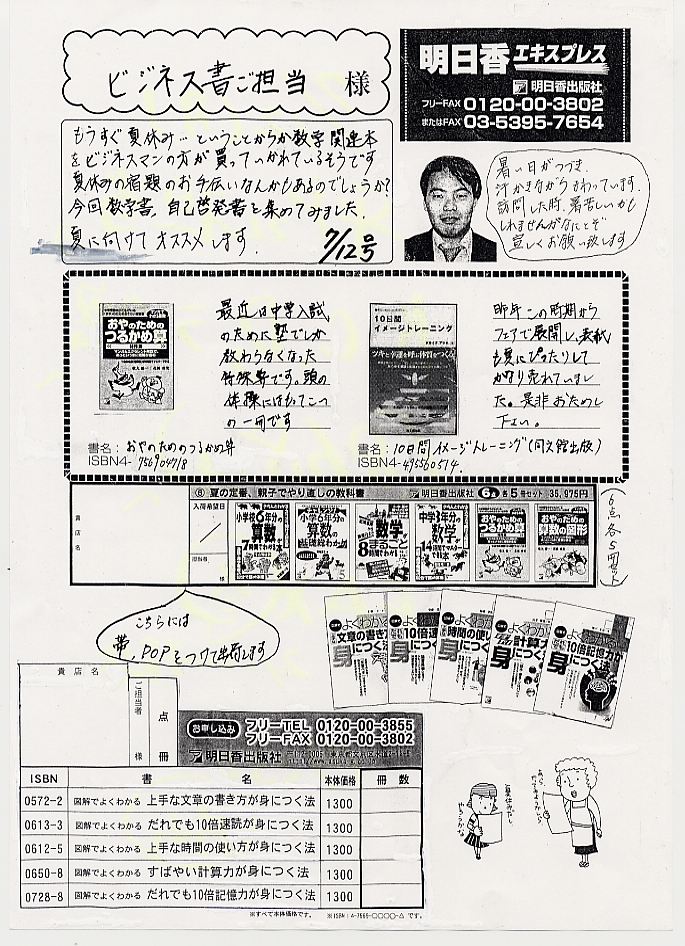 ビジネス書ご担当 様
明日香エキスプレス
明日香出版社
フリーFAX 0120-00-3802
またはFAX 03-5395-7654
もうすぐ夏休み…ということからか数学関連本
をビジネスマンの方が買っていかれているそうです
夏休みの宿題のお手伝いなんかもあるのでしょうか?
今回数学書、自己啓発書を集めてみました。
夏に向けてオススメします。
7/12号
暑い日がつづき、
汗かきながらまわっています。
訪問した時、暑苦しいかも
しれませんがなにとぞ
宜しくお願い致します
おやのための
つるかめ算
最近は中学入試
のために塾でしか
教わらなくなった
特殊算です。頭の
体操にはもってこい
の一冊です
書名: おやのためのつるかめ算
ISBN4- 756904718
10日間
イメージトレーニング
ツキと幸運を呼ぶ体質をつくる
昨年この時期から
フェアで展開し、表紙
も夏にぴったりして
かなり売れていまし
た。是非おためし
下さい。
書名: 10日間イメージトレーニング(同文館出版)
ISBN4- 495560514
⑧ 夏の定番、親子でやり直しの教科書
明日香出版社
6点 各5冊セット 35,975円
貴店名
入荷希望日
/
担当者
様
小学校6年分の
算数が
小学6年分の
算数の
数学が
8
まるごと
中学3年分の
数学が
14
おやのための
つるかめ算
おやのための
算数の図形
(6点各5冊セット)
こちらには
帯、POPをつけて出荷します
よくわかる
文章の書き方が
身につく法
よくわかる
10倍速
身につく
よくわかる
時間の使い
身につく
よくわかる
計算力が
身につく
よくわかる
10倍記憶力が
身につく法
貴店名
ご担当者
様
点
冊
お申し込み
フリーTEL 0120-00-3855
フリーFAX 0120-00-3802
明日香出版社
ISBN 書名 本体価格 冊数
0572-2 図解でよくわかる 上手な文章の書き方が身につく法 1300
0613-3 図解でよくわかる だれでも10倍速読が身につく法 1300
0612-5 図解でよくわかる 上手な時間の使い方が身につく法 1300
0650-8 図解でよくわかる すばやい計算力が身につく法 1300
0728-8 図解でよくわかる だれでも10倍記憶力が身につく法 1300
※すべて本体価格です。 ※ISBN:4-7569-○○○○-△ です。